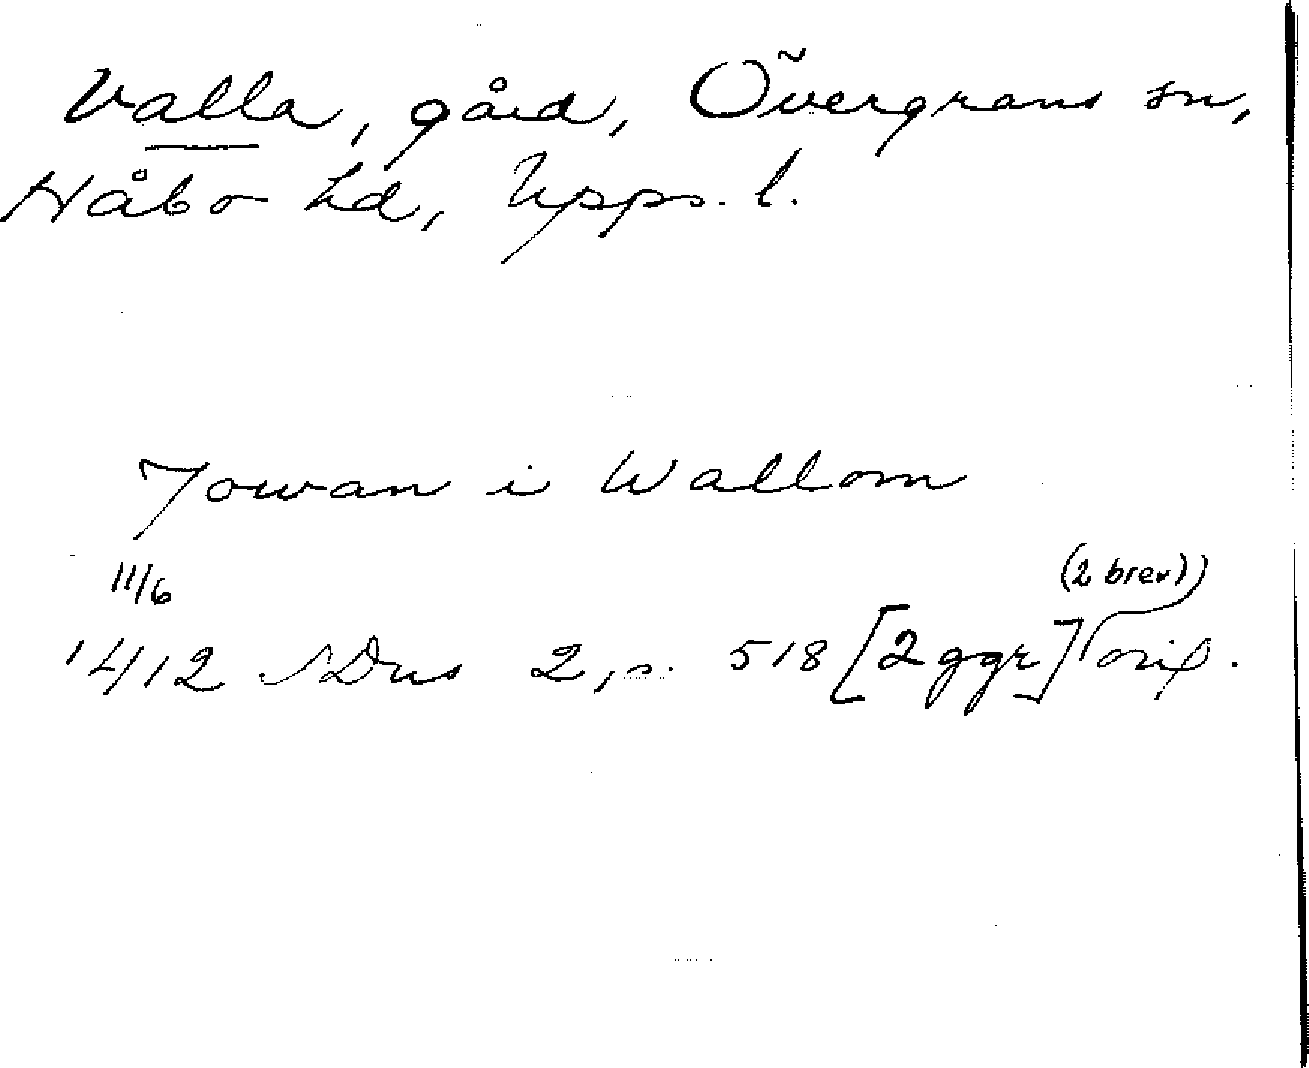 Valla, gård, Övergrans sn,
Håbo hd, Upps. l.
Jowan i Wallom
11/6
(2 brev))
1412 SDns 2, s. 518 [2 ggr] orig.